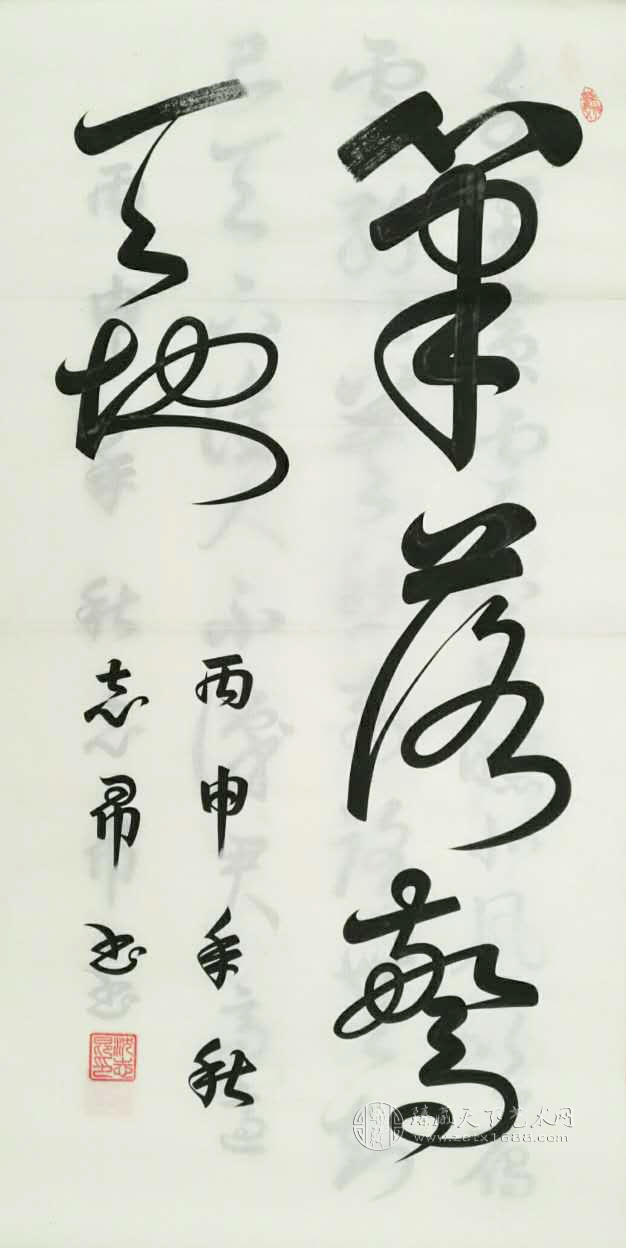 筆落驚
天地
丙申年秋
志书
臻藏天下艺术网
www.zctx1688.com